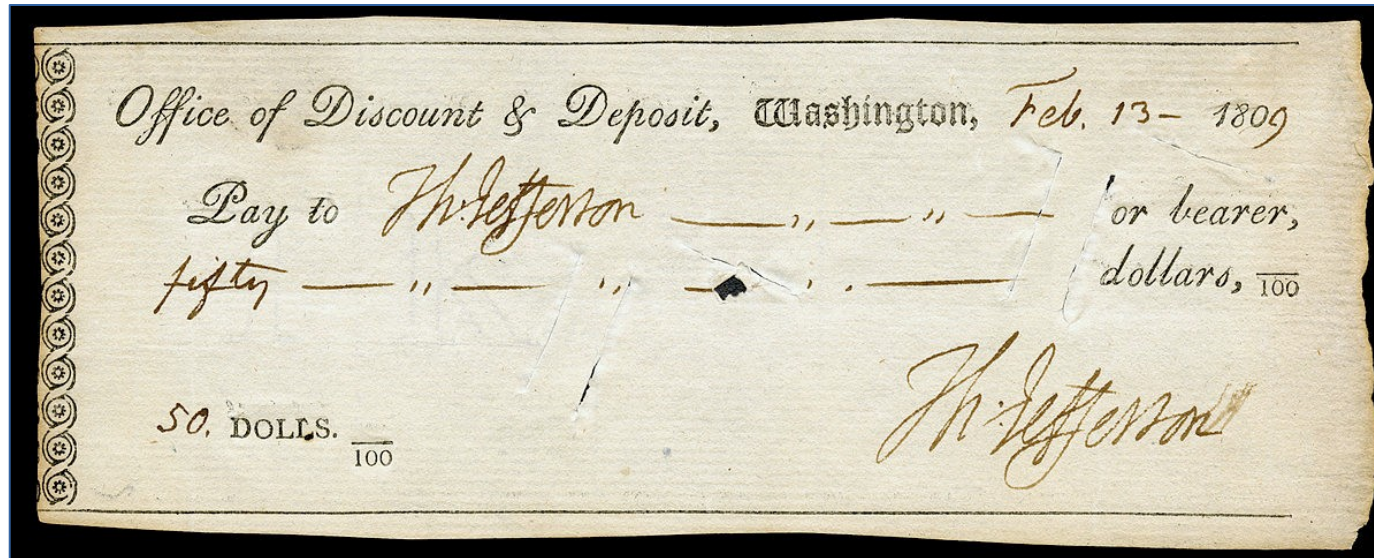 Office of Discount & Deposit, Washington, Feb. 13 – 1809
Pay to Th: Jefferson — „ — „ — or bearer,
fifty — „ — „ — „ — dollars, /100
50. DOLLS. /100
Th: Jefferson